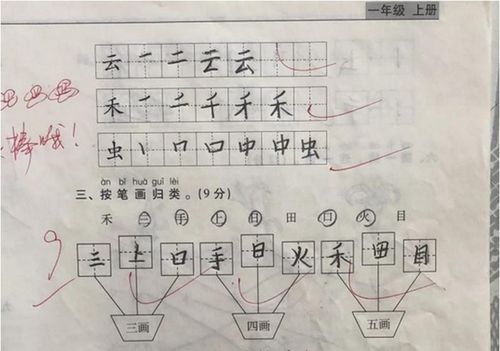 一年级 上册
云 一 二 云 云
禾 一 二 千 禾 禾
棒哦!
虫 丨 口 口 中 虫 虫
àn bǐ huà guī lèi
三、按笔画归类。(9分)
禾 三 手 上 日 田 口 火 目
9
三 上 口 手 日 火 禾 田 目
三画 四画 五画